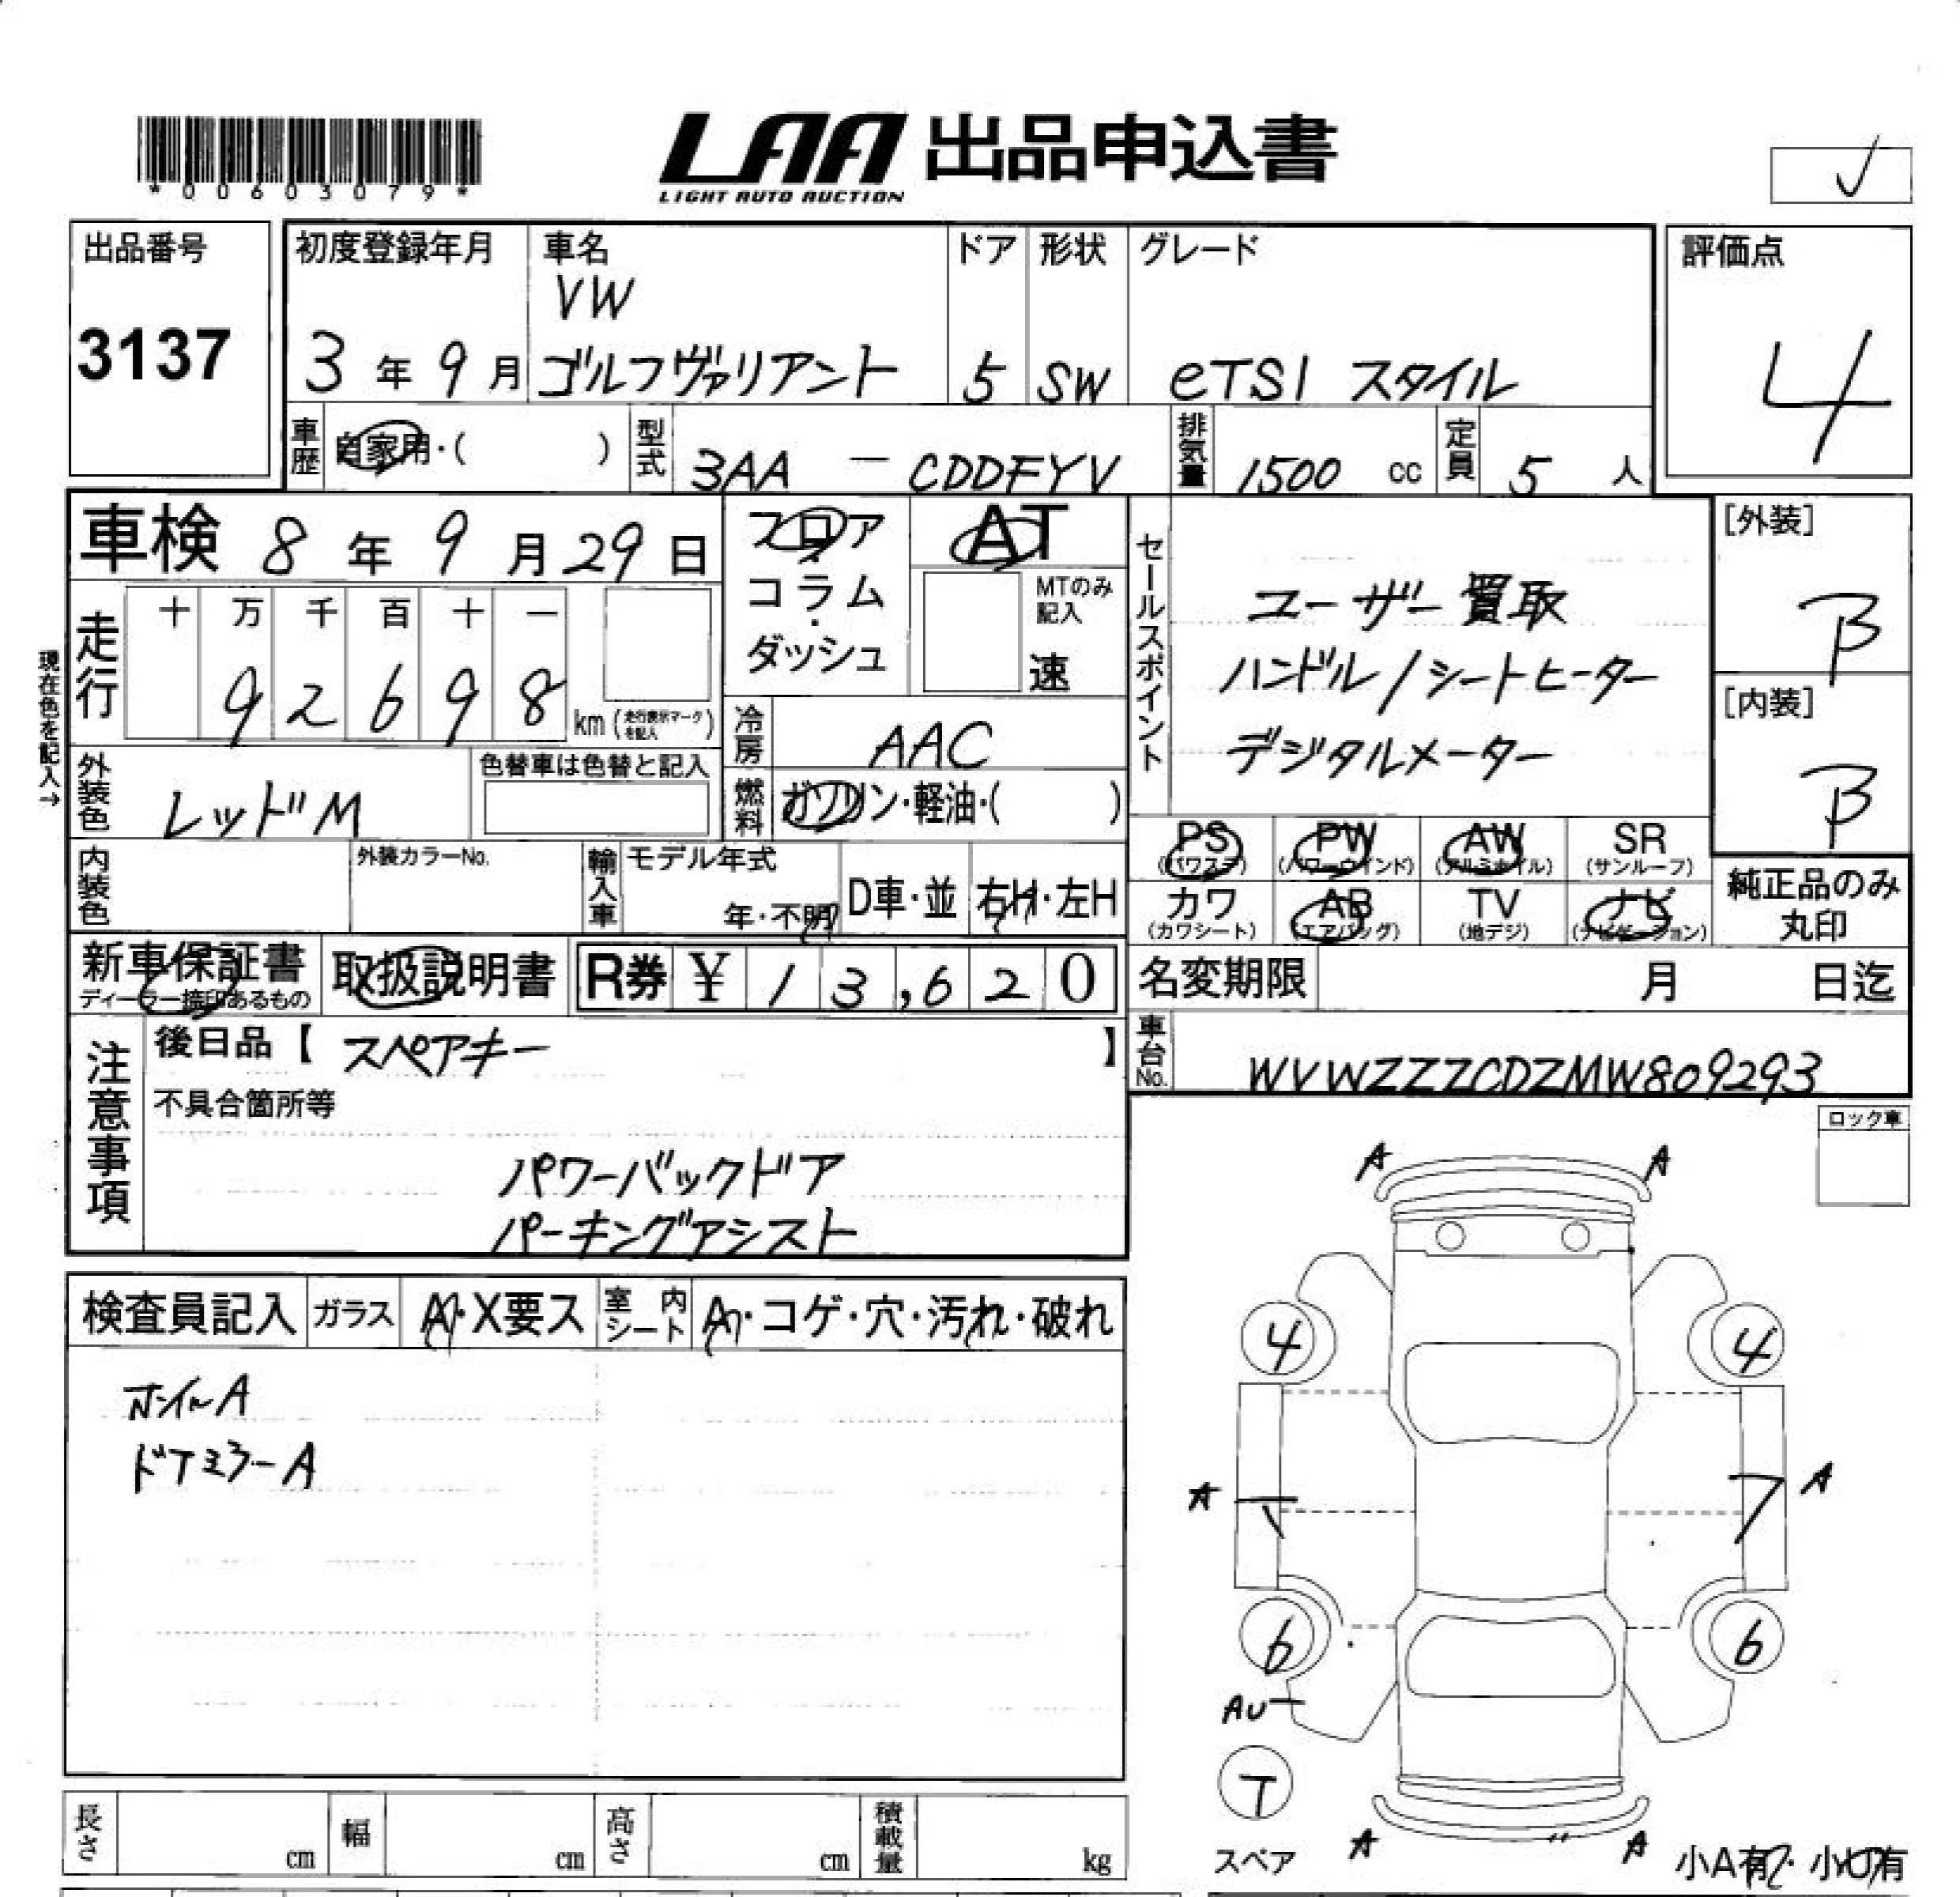 *00603079*
LAA 出品申込書
LIGHT AUTO AUCTION
✓
出品番号
3137
初度登録年月
3年9月
車名
VW
ゴルフヴァリアント
ドア
5
形状
SW
グレード
eTSI スタイル
評価点
4
車歴
自家用・( )
型式
3AA - CDDFYV
排気量
1500 cc
定員
5人
車検 8年9月29日
フロア・コラム・ダッシュ
AT
MTのみ記入
速
セールスポイント
ユーザー買取
ハンドル/シートヒーター
デジタルメーター
[外装]
B
[内装]
B
現在色を記入→
走行
十 万 千 百 十 一
9 2 6 9 8 km (走行表示マークを記入)
冷房
AAC
外装色
レッドM
色替車は色替と記入
燃料
ガソリン・軽油・( )
PS (パワステ)
PW (パワーウインド)
AW (アルミホイル)
SR (サンルーフ)
カワ (カワシート)
AB (エアバッグ)
TV (地デジ)
ナビ (ナビゲーション)
純正品のみ丸印
内装色
外装カラーNo.
輸入車
モデル年式
年・不明
D車・並
右H・左H
新車保証書
ディーラー捺印あるもの
取扱説明書
R券 ¥ 13,620
名変期限 月 日迄
注意事項
後日品【 スペアキー 】
不具合箇所等
パワーバックドア
パーキングアシスト
車台No.
WVWZZZCDZMW809293
ロック車
検査員記入
ガラス
A・X要ス
室内シート
A・コゲ・穴・汚れ・破れ
ホイルA
ドアミラーA
A A
4 4
A A
6 6
AU
T
スペア
A A
小A有・小U有
長さ cm
幅 cm
高さ cm
積載量 kg